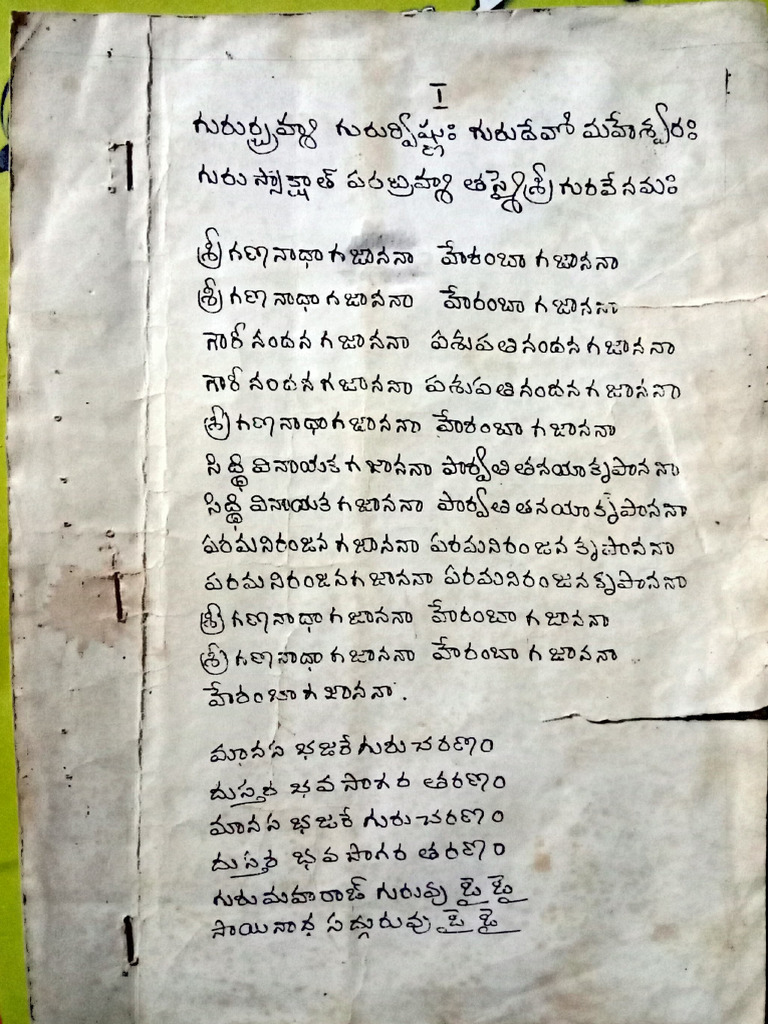 I
గురుర్బ్రహ్మా గురుర్విష్ణుః గురుదేవో మహేశ్వరః
గురుస్సాక్షాత్ పరబ్రహ్మా తస్మైశ్రీ గురవేనమః
శ్రీ గణనాధా గజాననా హేరంబా గజాననా
శ్రీ గణనాధా గజాననా హేరంబా గజాననా
గౌరీ నందన గజాననా పశుపతినందన గజాననా
గౌరీ నందన గజాననా పశుపతినందన గజాననా
శ్రీ గణనాధా గజాననా హేరంబా గజాననా
సిద్ధి వినాయక గజాననా పార్వతి తనయా కృపాననా
సిద్ధి వినాయక గజాననా పార్వతి తనయా కృపాననా
పరమనిరంజన గజాననా పరమనిరంజన కృపాననా
పరమనిరంజన గజాననా పరమనిరంజన కృపాననా
శ్రీ గణనాధా గజాననా హేరంబా గజాననా
శ్రీ గణనాధా గజాననా హేరంబా గజాననా
హేరంబా గజాననా.
మానస భజరే గురు చరణం
దుస్తర భవ సాగర తరణం
మానస భజరే గురు చరణం
దుస్తర భవ సాగర తరణం
గురు మహరాజ్ గురువు జై జై
సాయినాధ సద్గురువు జై జై